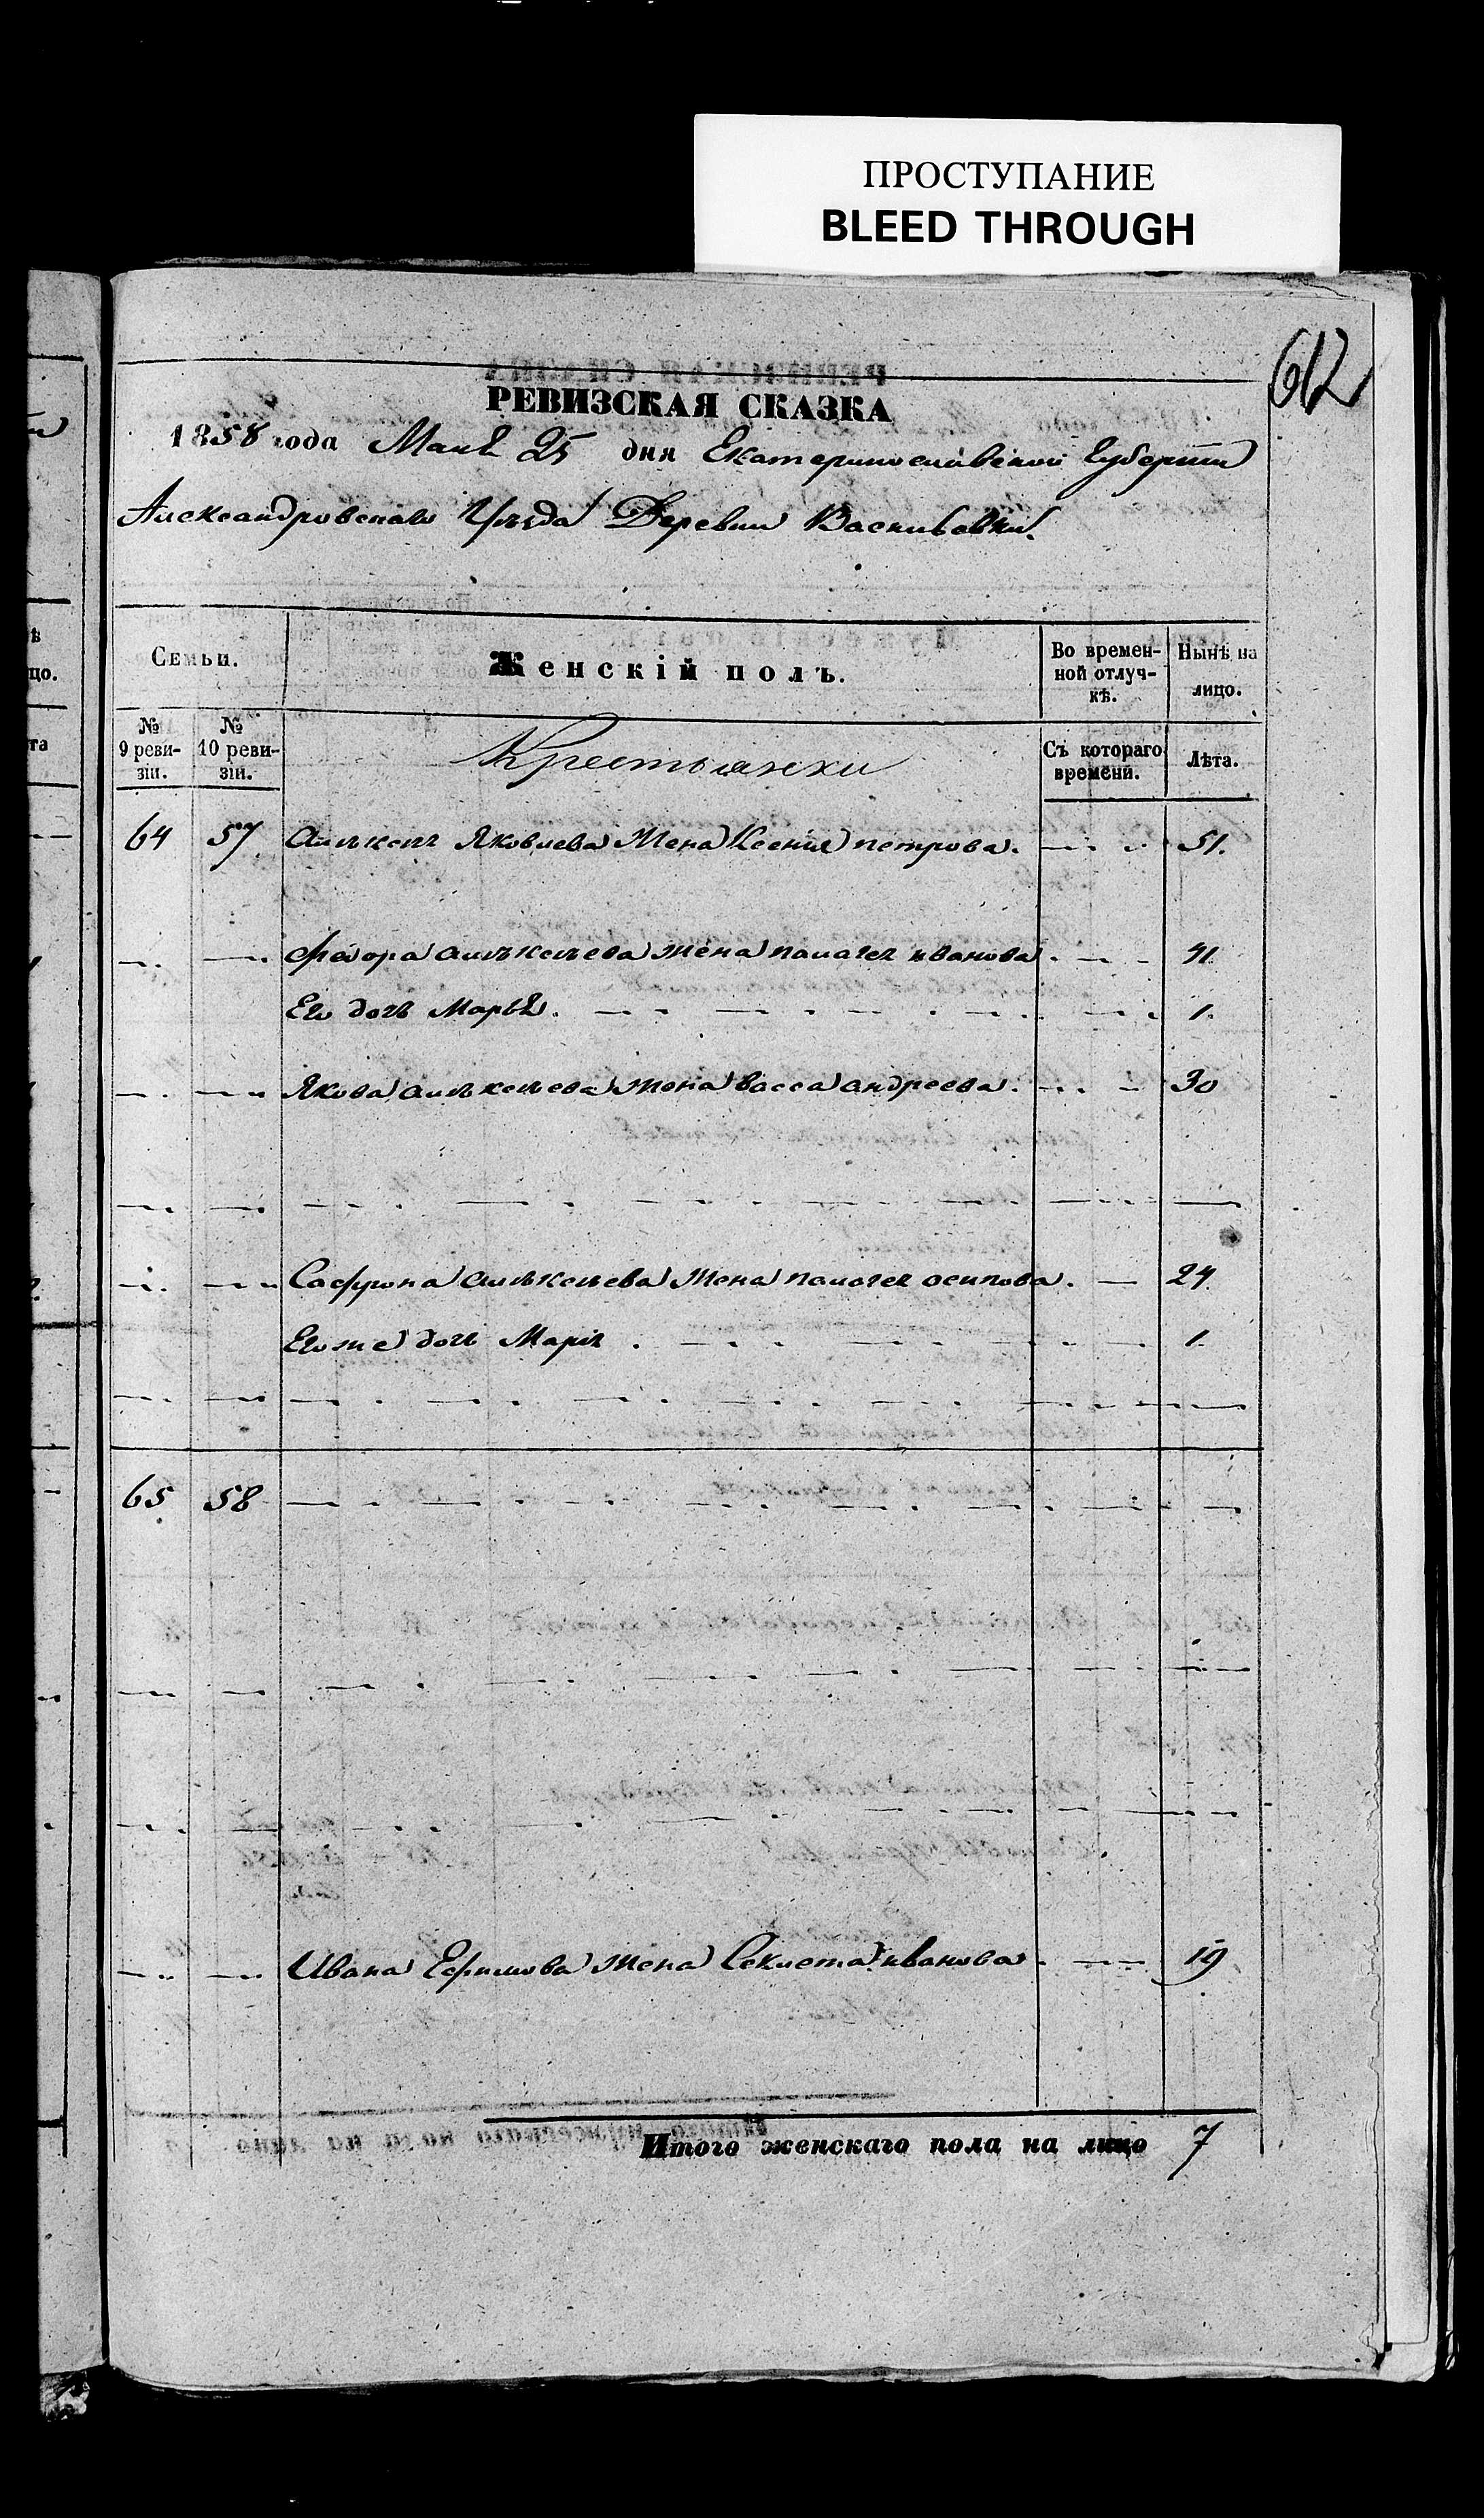 ПРОСТУПАНИЕ
BLEED THROUGH
612
РЕВИЗСКАЯ СКАЗКА
1858 года Маія 25 дня Екатеринославской Губерніи
Александровскаго Уѣзда Деревни Васильевки.
Семьи.
Женскій полъ.
Во времен-
ной отлуч-
кѣ.
Нынѣ на
лицо.
№
9 реви-
зіи.
№
10 реви-
зіи.
Крестьянки
Съ котораго
времени.
Лѣта.
64 57 Алѣксея Яковлева Жена Ксения петрова. 51.
Федора алѣксѣева жена палагея иванова. 41
Его дочь Марья. 1.
Якова алѣксѣева жена Васса андреева. 30
Сафрона алѣксѣева Жена палагея осипова. 24
Его же дочь Марія. 1.
65 58
Ивана Ефимова жена Секлета иванова. 19
Итого женскаго пола на лицо 7